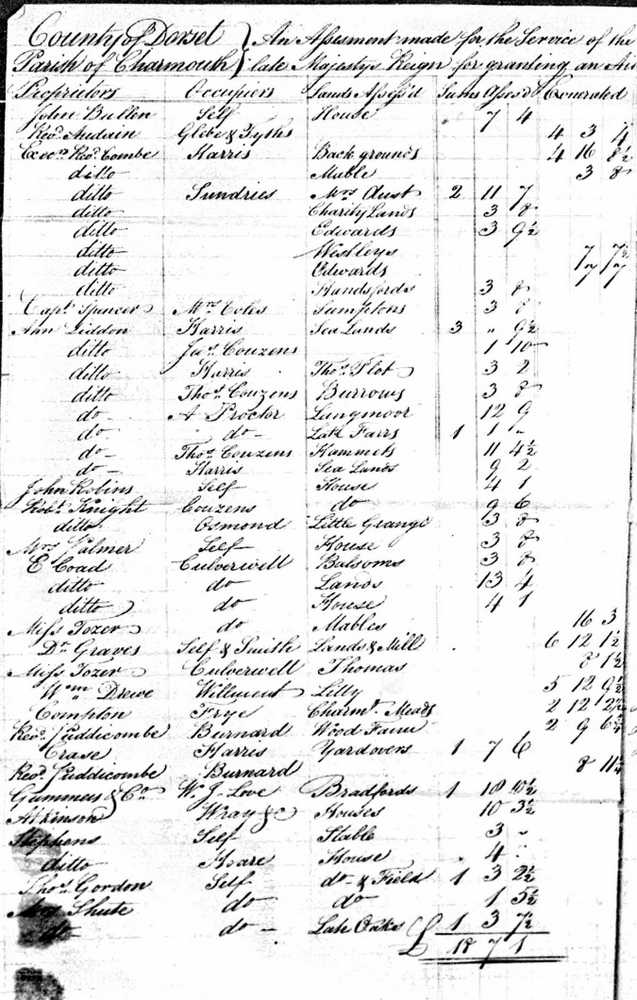 County of Dorset } An Assesment made for the Service of the
Parish of Charmouth } late Majestys Reign for granting an Aid
Proprietors Occupiers Lands Assess'd Sums Assess'd Exonerated
John Bullen Self House 7 4
Revd. Audain Glebe & Tyths 4 3 4
Exors Revd. Combe Harris Back grounds 4 16 8½
ditto Mable 3 8
ditto Sundries Mrs Aust 2 11 7
ditto Charity Lands 3 8
ditto Edwards 3 9½
ditto Westleys 7 7½
ditto Edwards 7 7
ditto Handsfords 3 8
Capt. Spencer Mrs Coles Sumptons 3 8
Ann Liddon Harris Sea Lands 3 " 9½
ditto Jas. Couzens 1 10
ditto Harris Thos. Flot 3 2
ditto Thos. Couzens Burrows 3 8
do A Procter Langmoor 12 9
do do - Late Farrs 1 1 "
do - Thos. Couzens Hammets 11 4½
do - Harris Sea Lands 9 2
John Robins Self House 4 1
Robt. Knight Couzens do 9 6
ditto Osmond Little Grange 3 8
Mrs Palmer Self House 3 8
E Coad Culverwell Balsoms 3 8
ditto do Lands 13 4
ditto do House 4 1
Miss Tozer do Mables 16 3
Dr. Graves Self & Smith Lands & Mill 6 12 1½
Miss Tozer Culverwell Thomas 8 1½
Wm Drewe Willment Lilly 5 12 9½
Compton Frye Charmt. Meads 2 12 2½
Revd. Puddicombe Burnard Wood Farm 2 9 6¾
Crase Harris Yardovens 1 7 6
Revd. Puddicombe Burnard 8 11¼
Gummers & Co. W. J. Love Bradfords 1 18 10½
Atkinson Wray &c Houses 10 3½
Stephens Self Stable 3 "
ditto Hoare House 4 "
Thos. Gordon Self do - & Field 1 3 2½
Mrs Shute do do 1 5½
do do - Late Oakes 1 3 7½
£ 18 7 1